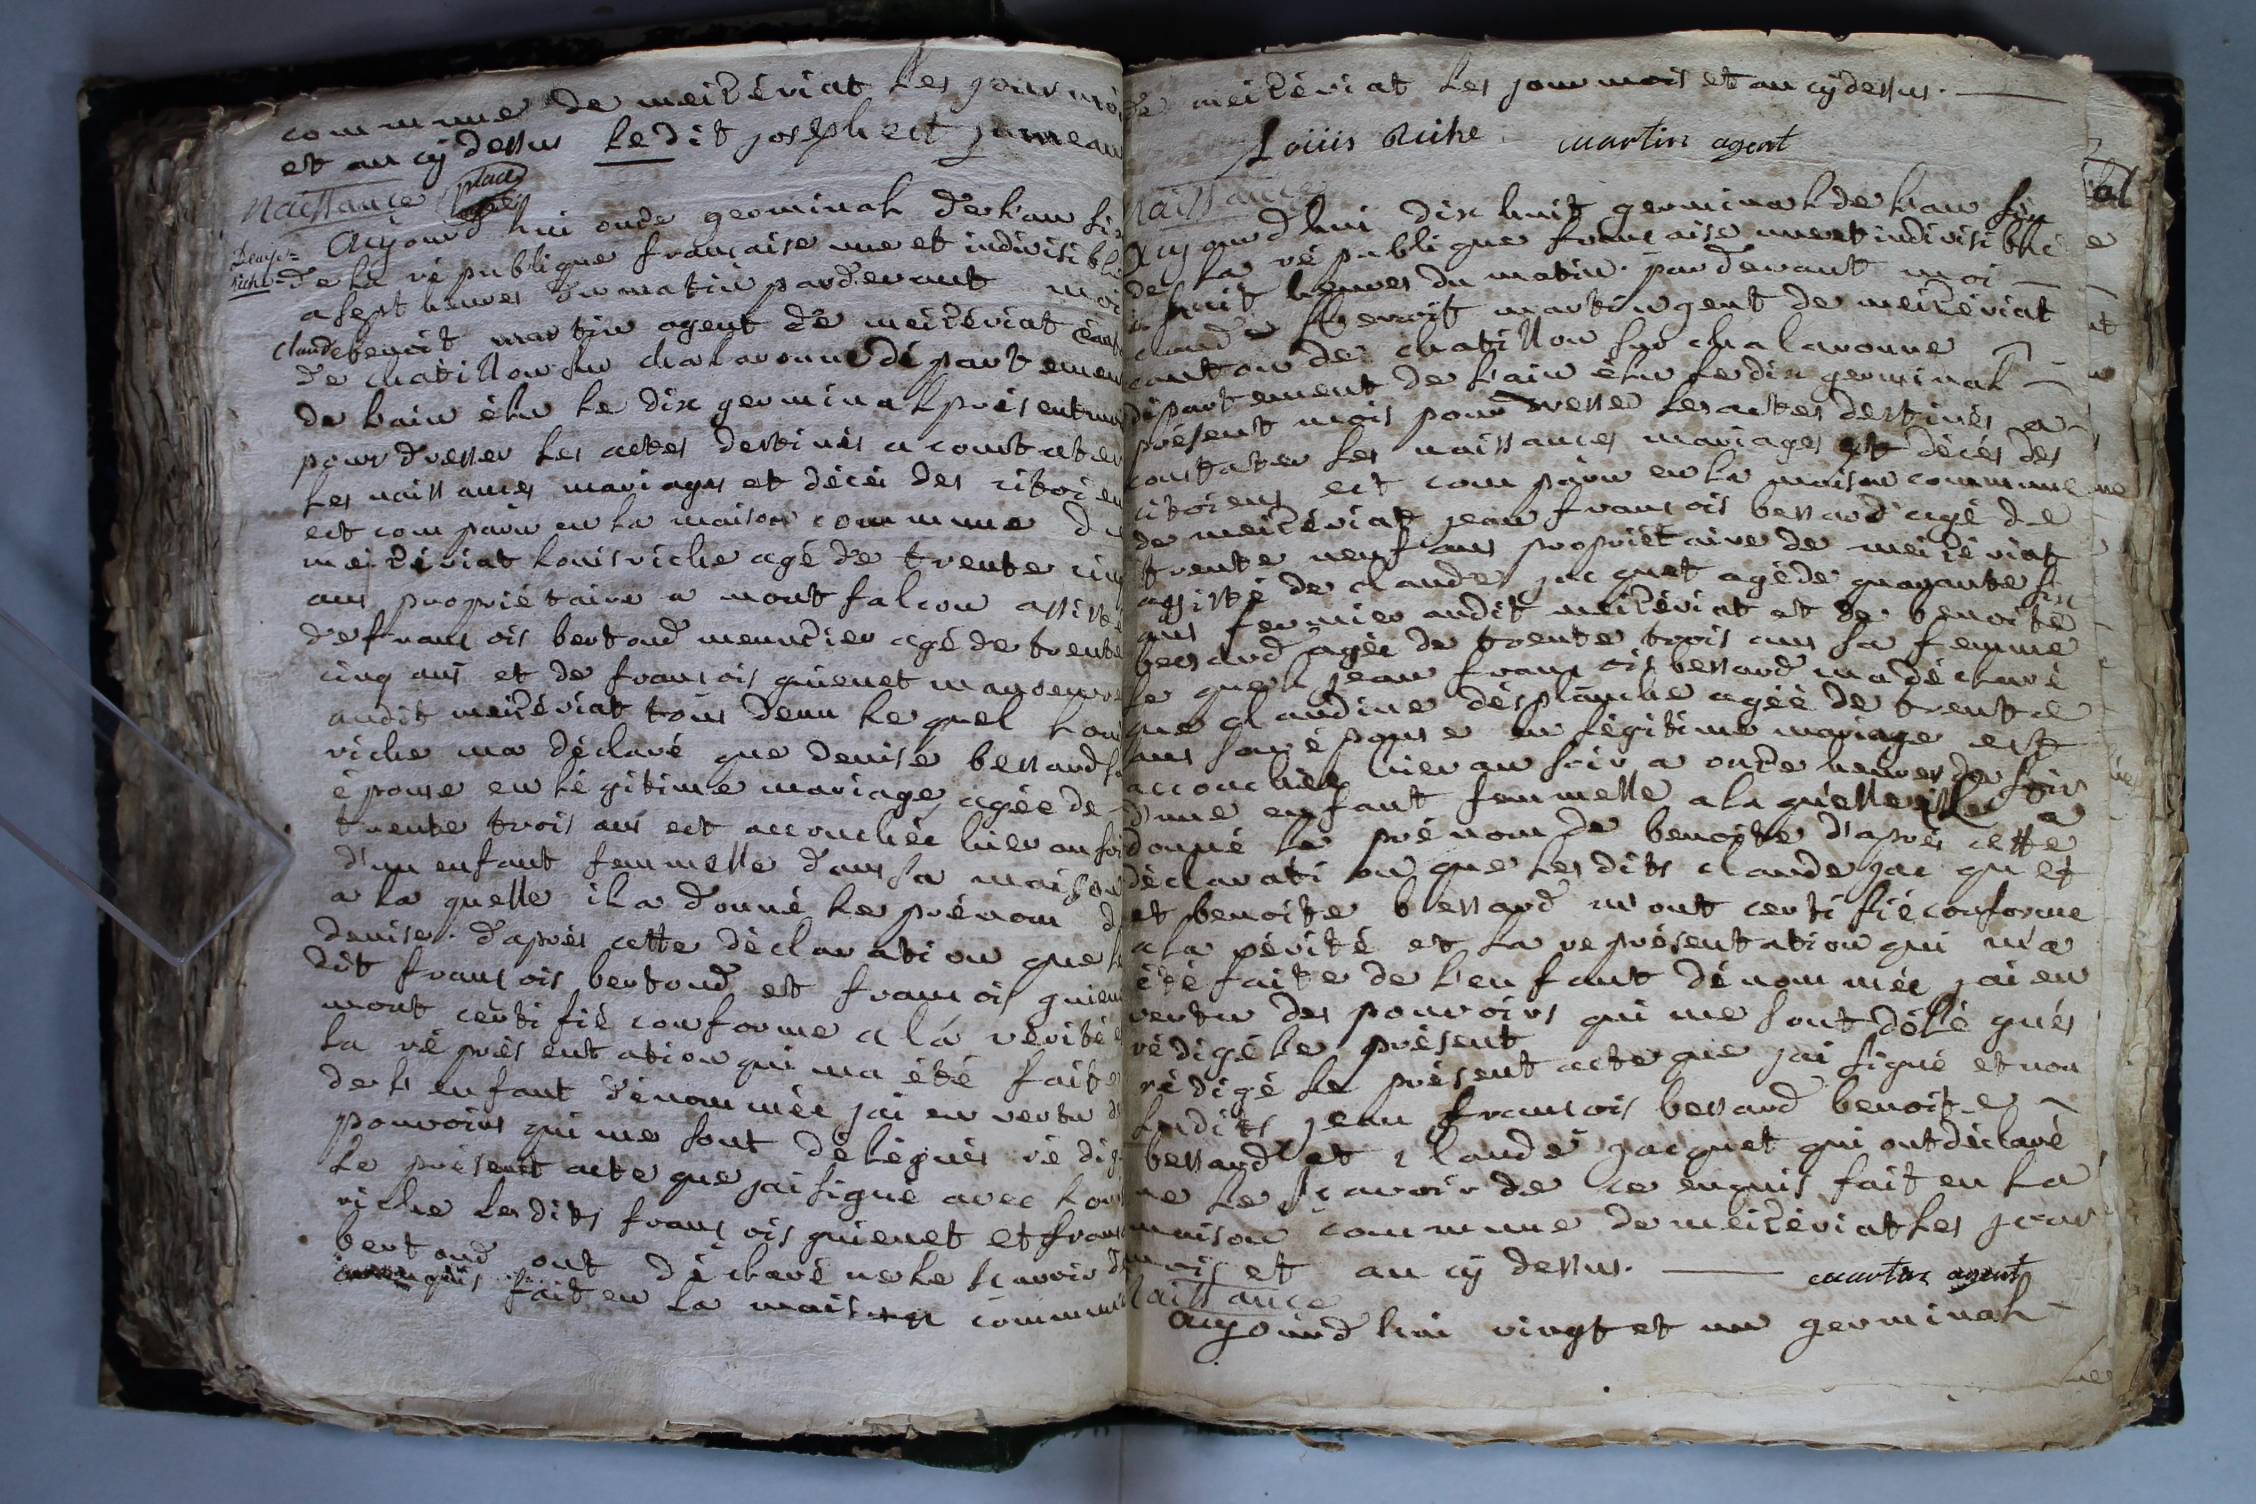 commune de meizériat les jour moi
et an cÿ dessus le dit joseph est jumeau
Naissance place
Denise Aujourd'hui onze germinal de l'an si
riche de la république française une et indivisible
a sept heures du matin pardevant moi
Claude benoit martin agent de meizériat
de chatillon sur chalaronne département
de lain élu le dix germinal présent moi
pour dresser les actes destinés a constater
les naissances mariages et décéi des citoien
est comparu en la maison commune de
meizériat louis riche agé de trente cinq
ans propriétaire a montfalcon assisté
de françois bertoud meunier agé de trente
cinq ans et de françois guienet manoeuvre
audit meizériat tous deux le quel loui
riche ma déclaré que denise bessard sa
épouse en légitime mariage agée de
trente trois ans est accouchée hier au soi
d'un enfant femmelle dans sa maison
a la quelle il a donné le prénom d
denise. d'aprés cette déclaration que le
dit françois bertoud et françois guien
mont certifié conforme a la vérité e
la représentation qui ma été faite
de l'enfant dénommée jai en vertu d
pouvoirs qui me sont délégués rédig
le présent acte que jai signé avec loui
riche lesdits françois guienet et franç
bertoud ont déclaré ne le sçavoir d
enquis fait en la maison commun
de meizériat les jour mois et an cÿ dessus.
Loüis Riche martin agent
Naissance
Aujourd'hui dix huit germinal de l'an six
de la république française une et indivisible
a huit heures du matin. pardevant moi
claude benoit martin agent de meizériat
canton de chatillon sur chalaronne
département de l'ain élu le dix germinal
présent mois pour dresser les actes destinés a
constater les naissances mariages et décés des
citoiens est comparu en la maison commune
de meizériat jean françois bessard agé de
trente neuf ans propriétaire de meizériat
assisté de claude jacquet agé de quarante six
ans fermier audit meizériat et de benoite
bessard agée de trente trois ans sa femme
le quel jean françois bessard ma déclaré
que claudine desplanche agée de trente
ans son épouse en légitime mariage est
accouchée hier au soir a onze heures de soir
d'une enfant femmelle a la quelle il a
donné le prénom de benoite d'aprés cette
déclaration que lesdits claude jacquet
et benoite bessard m'ont certifié conforme
a la vérité et la représentation qui m'a
été faite de l'enfant dénommée jai en
vertu des pouvoirs qui me sont délégués
rédigé le présent
rédigé le présent acte que jai signé et non
lesdits jean françois bessard benoite
bessard et claude jacquet qui ont déclaré
ne le sçavoir de ce enquis fait en la
maison commune de meizériat les jour
mois et an cÿ dessus. martin agent
Naissance
Aujourd'hui vingt et un germinal